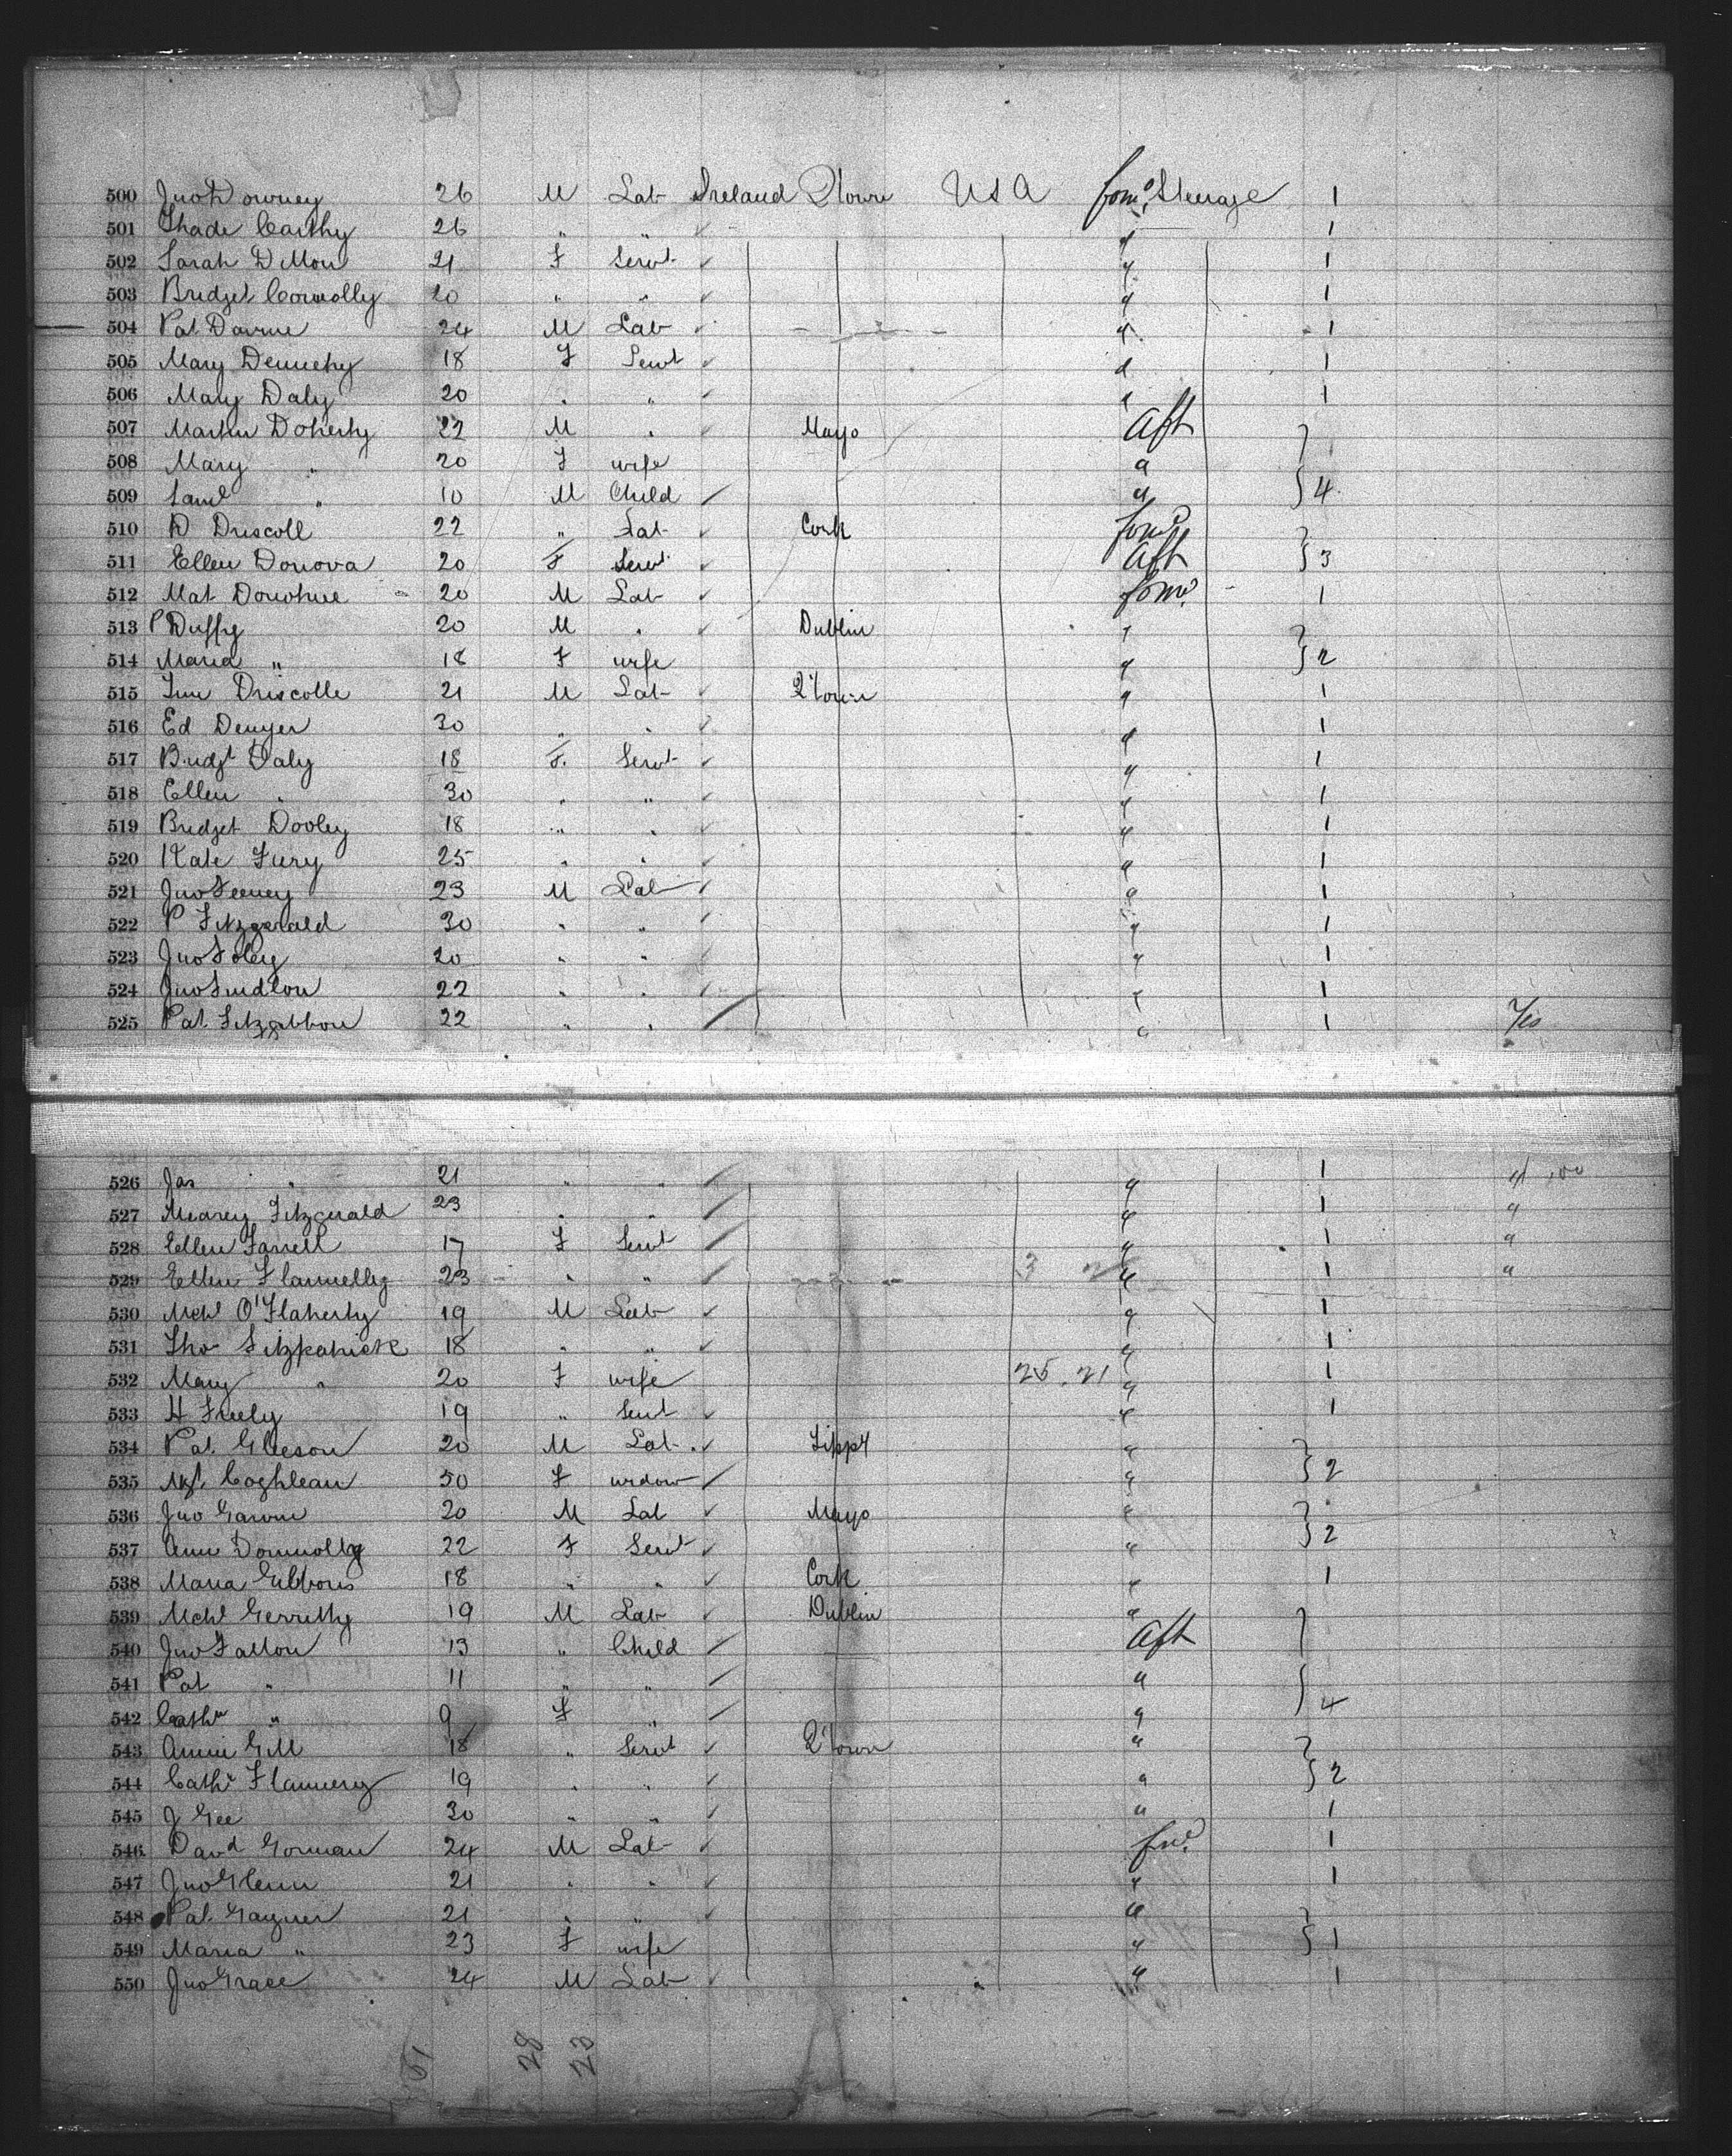 500 Jno Downey 26 M Lab Ireland Q'town U S A For'd Steerage 1
501 Thade Carthy 26 " " ✓ " 1
502 Sarah Dillon 21 F Servt ✓ " 1
503 Bridget Connolly 20 " " ✓ " 1
504 Pat Davine 24 M Lab ✓ " 1
505 Mary Dennehy 18 F Servt ✓ " 1
506 Mary Daly 20 " " ✓ " 1
507 Martin Doherty 22 M " ✓ Mayo Aft
508 Mary " 20 F wife "
509 Saml " 10 M Child ✓ " } 4
510 D Driscoll 22 " Lab ✓ Cork For'd
511 Ellen Donova 20 F Servt ✓ Aft } 3
512 Mat Donohue 20 M Lab ✓ For'd 1
513 P Duffy 20 M " ✓ Dublin "
514 Maria " 18 F wife " } 2
515 Tim Driscolle 21 M Lab ✓ Q'town " 1
516 Ed Denyer 30 " " ✓ " 1
517 Bridgt Daly 18 F. Servt ✓ " 1
518 Ellen " 30 " " ✓ " 1
519 Bridget Dooley 18 " " ✓ " 1
520 Kate Fury 25 " " ✓ " 1
521 Jno Feeney 23 M Lab ✓ " 1
522 P Fitzgerald 30 " " ✓ " 1
523 Jno Foley 20 " " ✓ " 1
524 Jno 22 " " ✓ " 1
525 Pat Fitzgibbon 22 " " ✓ " 1 Yes
526 Jas " 21 " " ✓ " 1
527 Fitzgerald 23 " " ✓ " 1 "
528 Ellen Farrell 17 F Servt ✓ " 1 "
529 Ellen Flannelly 23 " " ✓ " 1 "
530 Mchl O'Flaherty 19 M Lab ✓ " 1
531 Tho Fitzpatrick 18 " " ✓ " 1
532 Mary " 20 F wife 25 . 21 " 1
533 H Freely 19 " Servt ✓ " 1
534 Pat Gleeson 20 M Lab ✓ Tippy "
535 Mgt Coghlean 50 F widow ✓ " } 2
536 Jno Garvin 20 M Lab ✓ Mayo "
537 Ann Donnolly 22 F Servt ✓ " } 2
538 Maria Gibbons 18 " " ✓ Cork " 1
539 Mchl Gerrithy 19 M Lab ✓ Dublin "
540 Jno Fallon 13 " Child ✓ Aft
541 Pat " 11 " " ✓ "
542 Cathn " 9 F " ✓ " } 4
543 Annie Gill 18 " Servt ✓ Q'town "
544 Cathn Flannery 19 " " ✓ " } 2
545 J Gee 30 " " ✓ " 1
546 David Gorman 24 M Lab ✓ For'd 1
547 Jno Glenn 21 " " ✓ " 1
548 Pat Gayner 21 " " ✓ "
549 Maria " 23 F wife " } 1
550 Jno Grace 24 M Lab ✓ " 1
28 23